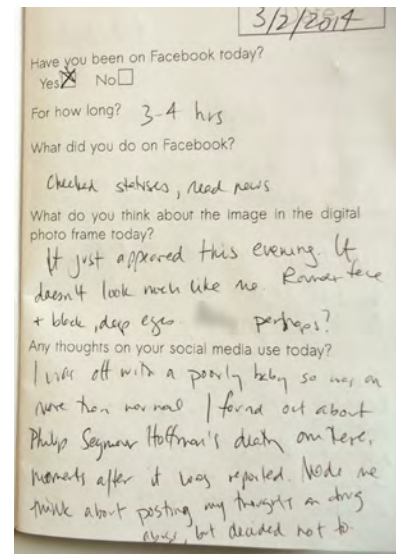 3/2/2014
Have you been on Facebook today?
Yes☒ No☐
For how long? 3-4 hrs
What did you do on Facebook?
Checked statuses, read news
What do you think about the image in the digital
photo frame today?
It just appeared this evening. It
doesn't look much like me. Rounder face
+ black, deep eyes. perhaps?
Any thoughts on your social media use today?
I was off with a poorly baby so was on
more than normal I found out about
Philip Seymour Hoffman's death on here,
moments after it was reported. Made me
think about posting my thoughts on drug
abuse, but decided not to.